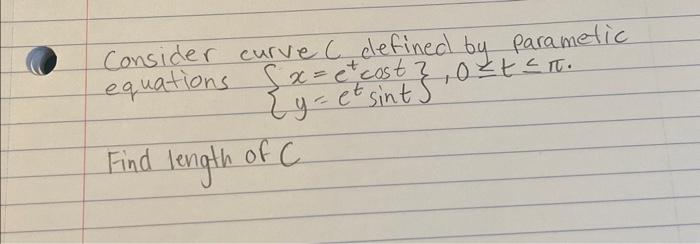 Consider curve C defined by parametic
equations { x = e^t cost } , 0 ≤ t ≤ π.
{ y = e^t sint }
Find length of C